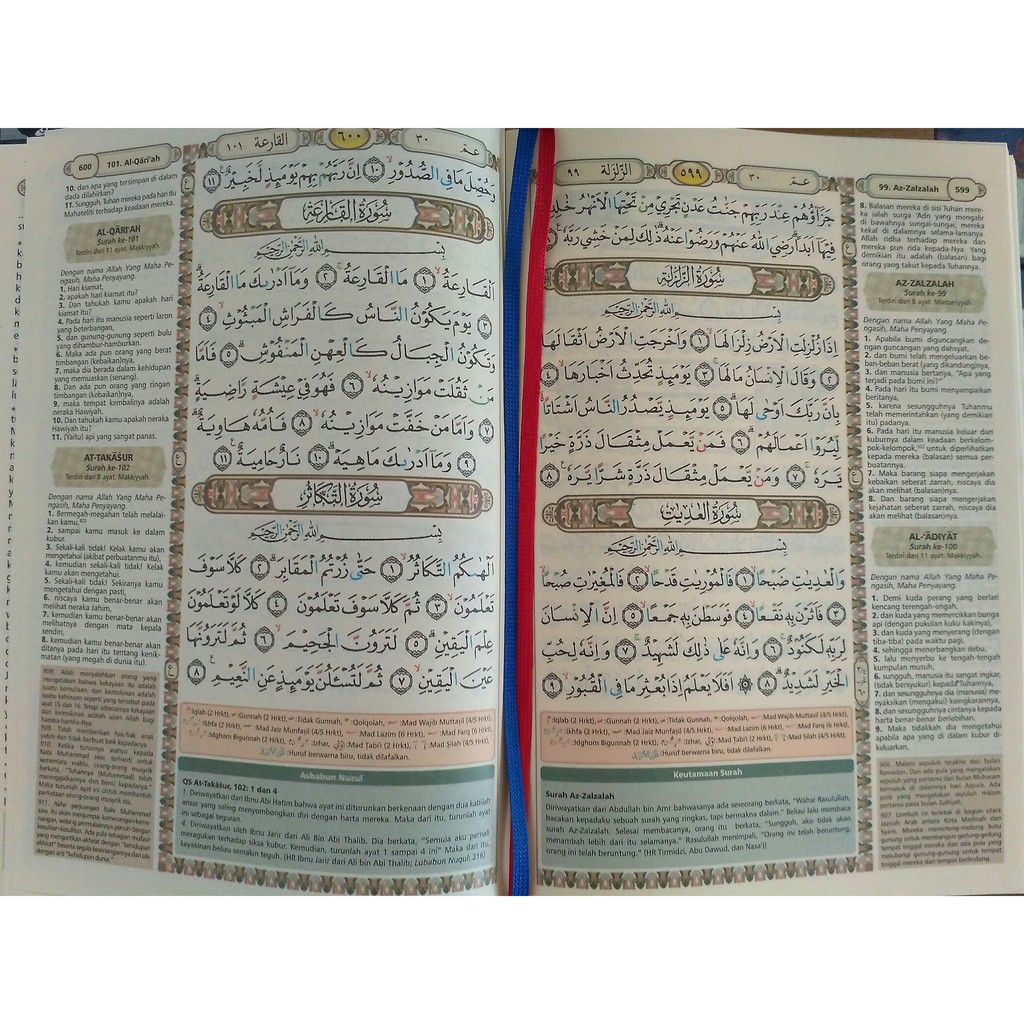 ٩٩ الزلزلة
٥٩٩
عمّ ٣٠
99. Az-Zalzalah 599
جَزَآؤُهُمْ عِنْدَ رَبِّهِمْ جَنّٰتُ عَدْنٍ تَجْرِيْ مِنْ تَحْتِهَا الْاَنْهٰرُ خٰلِدِيْنَ
فِيْهَآ اَبَدًاۗ رَضِيَ اللّٰهُ عَنْهُمْ وَرَضُوْا عَنْهُۗ ذٰلِكَ لِمَنْ خَشِيَ رَبَّهٗ ۝٨
سُوْرَةُ الزَّلْزَلَةِ
بِسْمِ اللّٰهِ الرَّحْمٰنِ الرَّحِيْمِ
اِذَا زُلْزِلَتِ الْاَرْضُ زِلْزَالَهَاۙ ۝١ وَاَخْرَجَتِ الْاَرْضُ اَثْقَالَهَاۙ
۝٢ وَقَالَ الْاِنْسَانُ مَا لَهَاۚ ۝٣ يَوْمَىِٕذٍ تُحَدِّثُ اَخْبَارَهَاۙ ۝٤
بِاَنَّ رَبَّكَ اَوْحٰى لَهَاۗ ۝٥ يَوْمَىِٕذٍ يَّصْدُرُ النَّاسُ اَشْتَاتًا ەۙ
لِّيُرَوْا اَعْمَالَهُمْۗ ۝٦ فَمَنْ يَّعْمَلْ مِثْقَالَ ذَرَّةٍ خَيْرًا
يَّرَهٗۚ ۝٧ وَمَنْ يَّعْمَلْ مِثْقَالَ ذَرَّةٍ شَرًّا يَّرَهٗ ۝٨
سُوْرَةُ الْعٰدِيٰتِ
بِسْمِ اللّٰهِ الرَّحْمٰنِ الرَّحِيْمِ
وَالْعٰدِيٰتِ ضَبْحًاۙ ۝١ فَالْمُوْرِيٰتِ قَدْحًاۙ ۝٢ فَالْمُغِيْرٰتِ صُبْحًاۙ
۝٣ فَاَثَرْنَ بِهٖ نَقْعًاۙ ۝٤ فَوَسَطْنَ بِهٖ جَمْعًاۙ ۝٥ اِنَّ الْاِنْسَانَ
لِرَبِّهٖ لَكَنُوْدٌۚ ۝٦ وَاِنَّهٗ عَلٰى ذٰلِكَ لَشَهِيْدٌۚ ۝٧ وَاِنَّهٗ لِحُبِّ
الْخَيْرِ لَشَدِيْدٌۗ ۝٨ ۞ اَفَلَا يَعْلَمُ اِذَا بُعْثِرَ مَا فِى الْقُبُوْرِۙ ۝٩
8. Balasan mereka di sisi Tuhan mere-
ka ialah surga 'Adn yang mengalir
di bawahnya sungai-sungai; mereka
kekal di dalamnya selama-lamanya.
Allah ridha terhadap mereka dan
mereka pun rida kepada-Nya. Yang
demikian itu adalah (balasan) bagi
orang yang takut kepada Tuhannya.
AZ-ZALZALAH
Surah ke-99
Terdiri dari 8 ayat. Madaniyyah.
Dengan nama Allah Yang Maha Pe-
ngasih, Maha Penyayang.
1. Apabila bumi diguncangkan de-
ngan guncangan yang dahsyat,
2. dan bumi telah mengeluarkan be-
ban-beban berat (yang dikandung)nya,
3. dan manusia bertanya, "Apa yang
terjadi pada bumi ini?"
4. Pada hari itu bumi menyampaikan
beritanya,
5. karena sesungguhnya Tuhanmu
telah memerintahkan (yang demikian
itu) padanya.
6. Pada hari itu manusia keluar dari
kuburnya dalam keadaan berkelom-
pok-kelompok, untuk diperlihatkan
kepada mereka (balasan) semua per-
buatannya.
7. Maka barang siapa mengerjakan
kebaikan seberat zarrah, niscaya dia
akan melihat (balasan)nya.
8. Dan barang siapa mengerjakan
kejahatan seberat zarrah, niscaya dia
akan melihat (balasan)nya.
AL-'ĀDIYĀT
Surah ke-100
Terdiri dari 11 ayat. Makkiyyah.
Dengan nama Allah Yang Maha Pe-
ngasih, Maha Penyayang.
1. Demi kuda perang yang berlari
kencang terengah-engah,
2. dan kuda yang memercikkan bunga
api (dengan pukulan kuku kakinya),
3. dan kuda yang menyerang (dengan
tiba-tiba) pada waktu pagi,
4. sehingga menerbangkan debu,
5. lalu menyerbu ke tengah-tengah
kumpulan musuh,
6. sungguh, manusia itu sangat ingkar,
(tidak bersyukur) kepada Tuhannya,
7. dan sesungguhnya dia (manusia) me-
nyaksikan (mengakui) keingkarannya,
8. dan sesungguhnya cintanya kepada
harta benar-benar berlebihan.
9. Maka tidakkah dia mengetahui
apabila apa yang di dalam kubur di-
keluarkan,
:Iqlab (2 Hrkt), :Gunnah (2 Hrkt), :Tidak Gunnah, :Qolqolah, :Mad Wajib Muttasil (4/5 Hrkt),
:Ikhfa (2 Hrkt), :Mad Jaiz Munfasil (4/5 Hrkt), :Mad Lazim (6 Hrkt), :Mad Farq (6 Hrkt),
:Idghom Bigunnah (2 Hrkt), :Izhar, :Mad Tabi'i (2 Hrkt), :Mad Silah (4/5 Hrkt),
:Huruf berwarna biru, tidak dilafalkan.
Keutamaan Surah
Surah Az-Zalzalah
Diriwayatkan dari Abdullah bin Amr bahwasanya ada seseorang berkata, "Wahai Rasulullah,
bacakan kepadaku sebuah surah yang ringkas, tapi bermakna dalam." Beliau lalu membaca
surah Az-Zalzalah. Selesai membacanya, orang itu berkata, "Sungguh, aku tidak akan
menambah lebih dari itu selamanya." Rasulullah menimpali, "Orang ini telah beruntung,
orang ini telah beruntung." (HR Tirmidzi, Abu Dawud, dan Nasa'i)
١٠١ القارعة
٦٠٠
عمّ ٣٠
600 101. Al-Qāri'ah
وَحُصِّلَ مَا فِى الصُّدُوْرِۙ ۝١٠ اِنَّ رَبَّهُمْ بِهِمْ يَوْمَىِٕذٍ لَّخَبِيْرٌ ۝١١
سُوْرَةُ الْقَارِعَةِ
بِسْمِ اللّٰهِ الرَّحْمٰنِ الرَّحِيْمِ
اَلْقَارِعَةُۙ ۝١ مَا الْقَارِعَةُۚ ۝٢ وَمَآ اَدْرٰىكَ مَا الْقَارِعَةُۗ
۝٣ يَوْمَ يَكُوْنُ النَّاسُ كَالْفَرَاشِ الْمَبْثُوْثِۙ ۝٤
وَتَكُوْنُ الْجِبَالُ كَالْعِهْنِ الْمَنْفُوْشِۗ ۝٥ فَاَمَّا
مَنْ ثَقُلَتْ مَوَازِيْنُهٗۙ ۝٦ فَهُوَ فِيْ عِيْشَةٍ رَّاضِيَةٍۗ
۝٧ وَاَمَّا مَنْ خَفَّتْ مَوَازِيْنُهٗۙ ۝٨ فَاُمُّهٗ هَاوِيَةٌۗ
۝٩ وَمَآ اَدْرٰىكَ مَا هِيَهْۗ ۝١٠ نَارٌ حَامِيَةٌ ۝١١
سُوْرَةُ التَّكَاثُرِ
بِسْمِ اللّٰهِ الرَّحْمٰنِ الرَّحِيْمِ
اَلْهٰىكُمُ التَّكَاثُرُۙ ۝١ حَتّٰى زُرْتُمُ الْمَقَابِرَۗ ۝٢ كَلَّا سَوْفَ
تَعْلَمُوْنَۙ ۝٣ ثُمَّ كَلَّا سَوْفَ تَعْلَمُوْنَ ۝٤ كَلَّا لَوْ تَعْلَمُوْنَ
عِلْمَ الْيَقِيْنِۗ ۝٥ لَتَرَوُنَّ الْجَحِيْمَۙ ۝٦ ثُمَّ لَتَرَوُنَّهَا
عَيْنَ الْيَقِيْنِۙ ۝٧ ثُمَّ لَتُسْـَٔلُنَّ يَوْمَىِٕذٍ عَنِ النَّعِيْمِ ۝٨
10. dan apa yang tersimpan di dalam
dada dilahirkan?
11. Sungguh, Tuhan mereka pada hari itu
Mahateliti terhadap keadaan mereka.
AL-QĀRI'AH
Surah ke-101
Terdiri dari 11 ayat. Makkiyyah.
Dengan nama Allah Yang Maha Pe-
ngasih, Maha Penyayang.
1. Hari kiamat,
2. apakah hari kiamat itu?
3. Dan tahukah kamu apakah hari
kiamat itu?
4. Pada hari itu manusia seperti laron
yang beterbangan,
5. dan gunung-gunung seperti bulu
yang dihambur-hamburkan.
6. Maka ada pun orang yang berat
timbangan (kebaikan)nya,
7. maka dia berada dalam kehidupan
yang memuaskan (senang).
8. Dan ada pun orang yang ringan
timbangan (kebaikan)nya,
9. maka tempat kembalinya adalah
neraka Hawiyah.
10. Dan tahukah kamu apakah neraka
Hawiyah itu?
11. (Yaitu) api yang sangat panas.
AT-TAKĀṠUR
Surah ke-102
Terdiri dari 8 ayat. Makkiyyah.
Dengan nama Allah Yang Maha Pe-
ngasih, Maha Penyayang.
1. Bermegah-megahan telah melalai-
kan kamu,
2. sampai kamu masuk ke dalam
kubur.
3. Sekali-kali tidak! Kelak kamu akan
mengetahui (akibat perbuatanmu itu),
4. kemudian sekali-kali tidak! Kelak
kamu akan mengetahui.
5. Sekali-kali tidak! Sekiranya kamu
mengetahui dengan pasti,
6. niscaya kamu benar-benar akan
melihat neraka Jahim,
7. kemudian kamu benar-benar akan
melihatnya dengan mata kepala
sendiri,
8. kemudian kamu benar-benar akan
ditanya pada hari itu tentang kenik-
matan (yang megah di dunia itu).
:Iqlab (2 Hrkt), :Gunnah (2 Hrkt), :Tidak Gunnah, :Qolqolah, :Mad Wajib Muttasil (4/5 Hrkt),
:Ikhfa (2 Hrkt), :Mad Jaiz Munfasil (4/5 Hrkt), :Mad Lazim (6 Hrkt), :Mad Farq (6 Hrkt),
:Idghom Bigunnah (2 Hrkt), :Izhar, :Mad Tabi'i (2 Hrkt), :Mad Silah (4/5 Hrkt),
:Huruf berwarna biru, tidak dilafalkan.
Asbabun Nuzul
QS At-Takāṡur, 102: 1 dan 4
Diriwayatkan dari Ibnu Abi Hatim bahwa ayat ini diturunkan berkenaan dengan dua kabilah
ansar yang saling menyombongkan diri dengan harta mereka. Maka dari itu, turunlah ayat
ini sebagai teguran.
4. Diriwayatkan oleh Ibnu Jarir dari Ali Bin Abi Thalib. Dia berkata, "Semula aku pernah
meragukan terhadap siksa kubur. Kemudian, turunlah ayat 1 sampai 4 ini" Maka dari itu,
keyakinan beliau semakin teguh. (HR Ibnu Jarir dari Ali bin Abi Thalib; Lubabun Nuqul: 216)